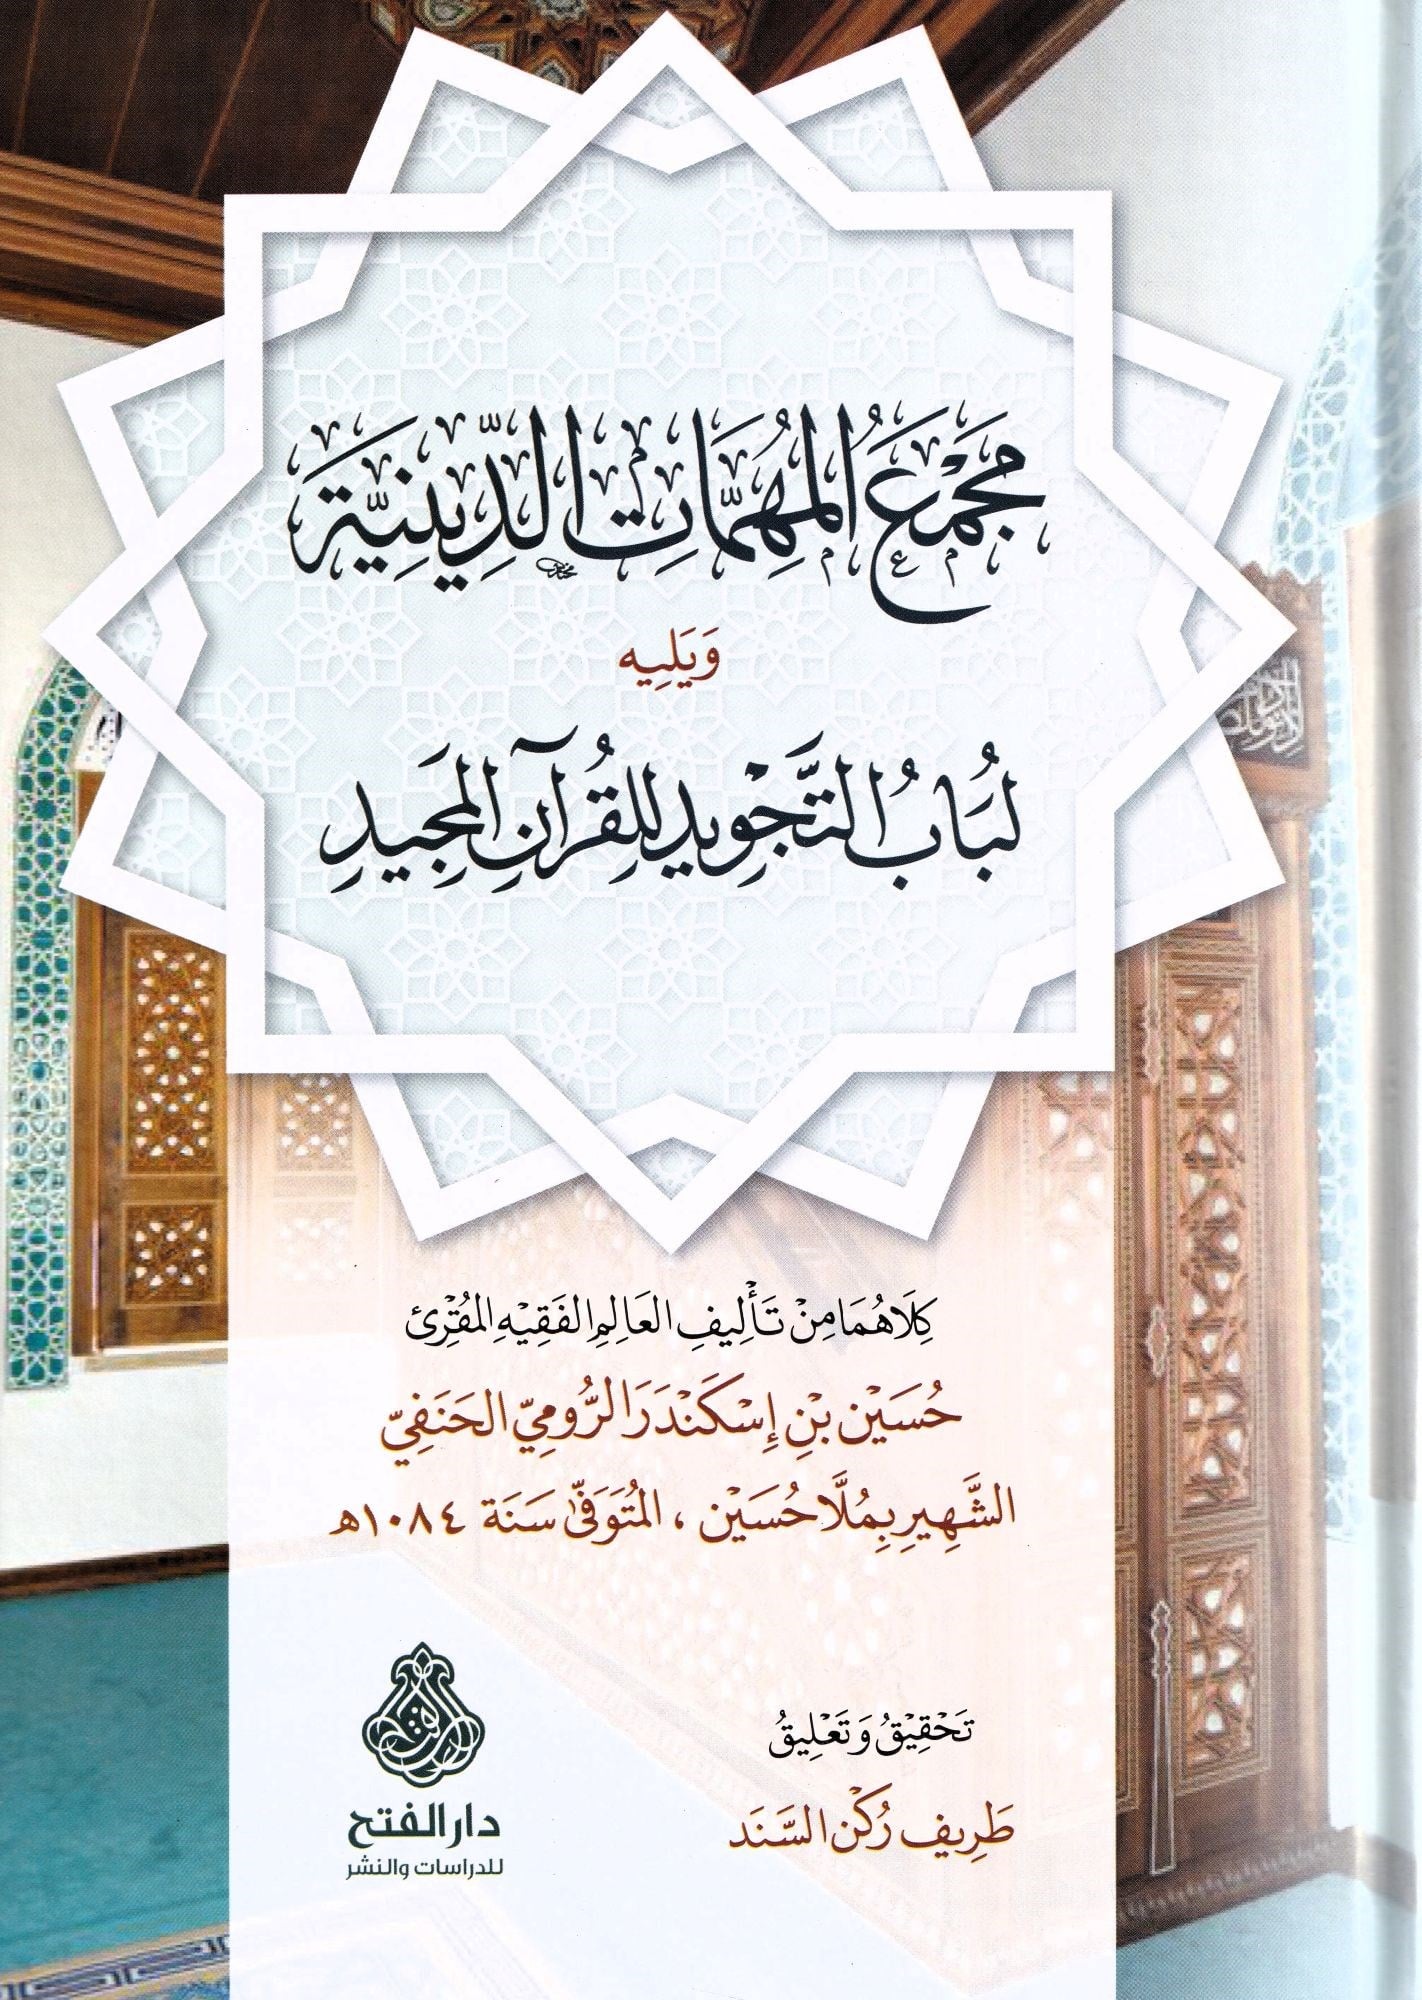 مَجْمَعُ المُهِمَّاتِ الدِّينِيَّةِ
وَيَلِيه
لُبَابُ التَّجْوِيدِ لِلقُرآنِ المَجِيدِ
كِلَاهُمَا مِنْ تَأْلِيفِ العَالِمِ الفَقِيْهِ المُقْرِئ
حُسَيْن بْنِ إِسْكَنْدَر الرُّومِيّ الحَنَفِيّ
الشَّهِيرِ بِمُلَّا حُسَيْن ، المُتَوَفّى سَنَة ١٠٨٤هـ
تَحْقِيْقُ وَتَعْلِيقُ
طَرِيف رُكْن السَّنَد
دار الفتح
للدراسات والنشر